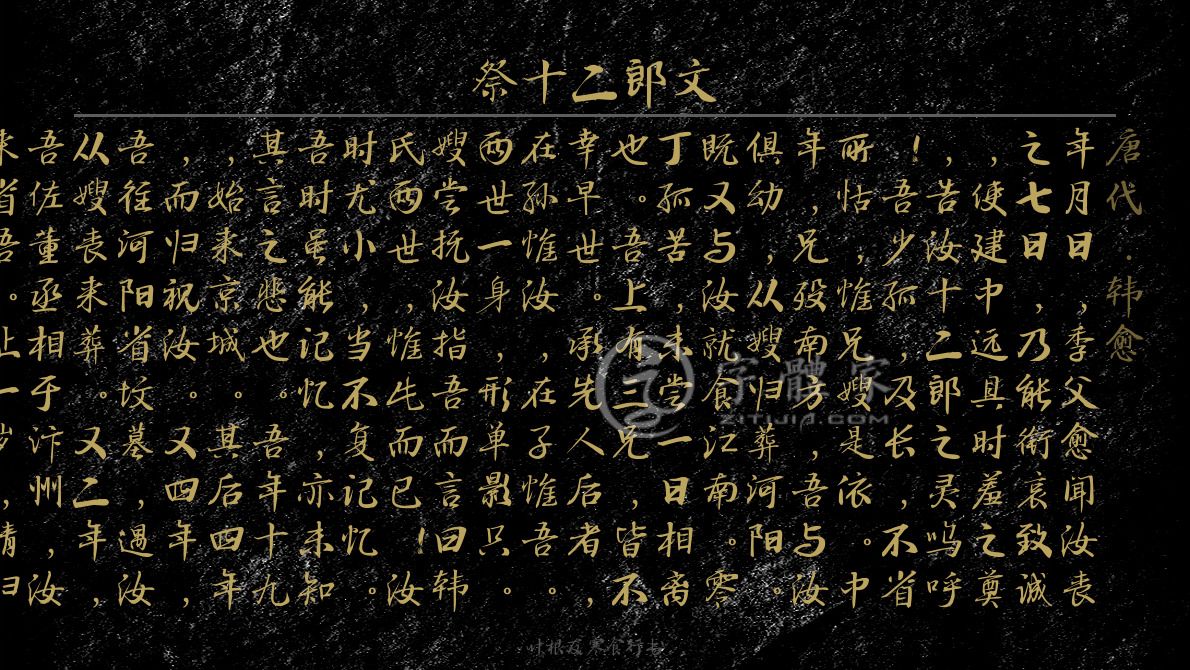 祭十二郎文
唐代·韩愈
年月日，季父愈闻汝丧
之七日，乃能衔哀致诚
，使建中远具时羞之奠
，告汝十二郎之灵呜呼
！吾少孤，及长，不省
所怙，惟兄嫂是依。中
年，兄殁南方，吾与汝
俱幼，从嫂归葬河阳。
既又与汝就食江南。零
丁孤苦，未尝一日相离
也。吾上有三兄，皆不
幸早世。承先人后者，
在孙惟汝，在子惟吾。
两世一身，形单影只。
嫂尝抚汝指吾而言曰韩
氏两世，惟此而已！汝
时尤小，当不复记忆。
吾时虽能记忆，亦未知
其言之悲也。吾年十九
，始来京城。其后四年
，而归视汝。又四年，
吾往河阳省坟墓，遇汝
从嫂丧来葬。又二年，
吾佐董丞相于汴州，汝
来省吾。止一岁，请归
字體家
ZITIJIA.COM
叶根友寒食行书